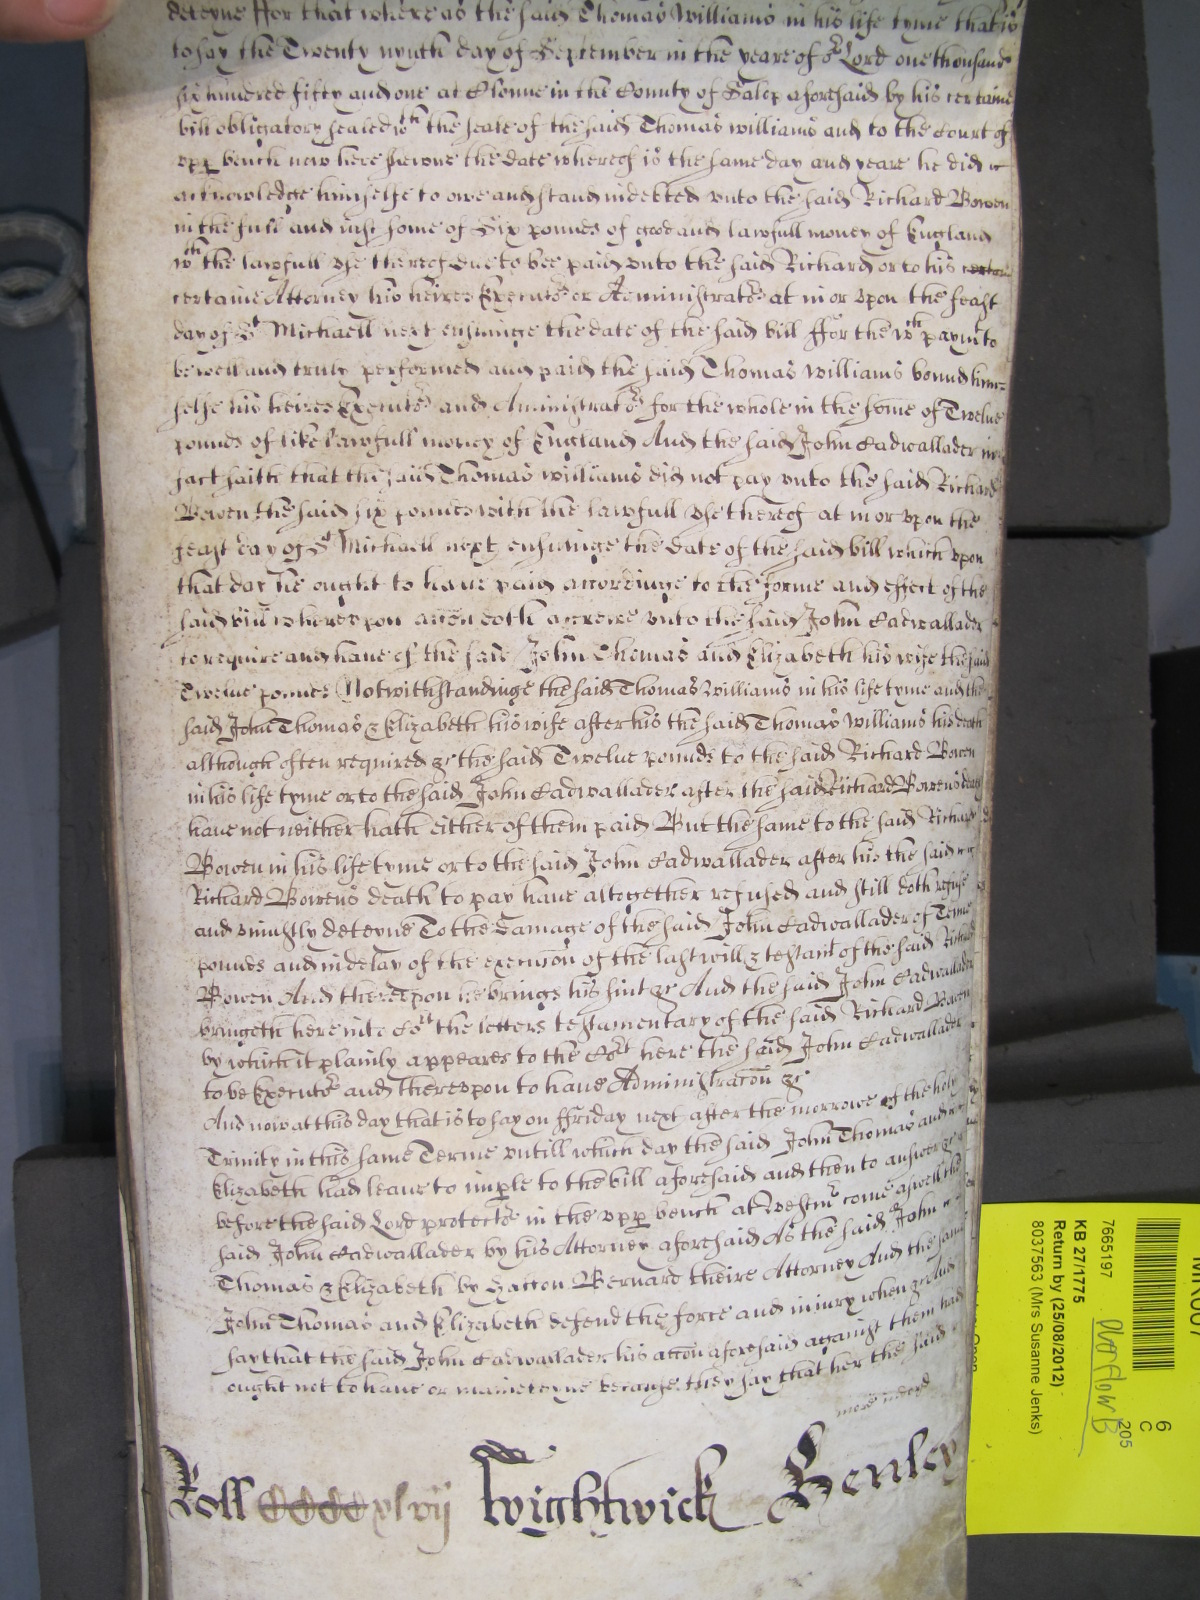 deteyne ffor that whereas the said Thomas Williams in his life tyme that is
to say the Twenty nynth day of September in the yeare of or Lord one thousand
six hundred fifty and one at Clonne in the County of Salop aforesaid by his certaine
bill obligatory sealed wth the seale of the said Thomas Williams and to the Court of
upp bench now here shewne the date whereof is the same day and yeare he did
acknowledge himselfe to owe and stand indebted unto the said Richard Bowen
in the full and just some of Six pounds of good and lawfull money of England
wth the lawfull use thereof due to bee paid unto the said Richard or to his
certaine Attorney his heires Executrs or Administratrs at in or upon the feast
day of St Michaell next ensuinge the date of the said bill ffor the wch paymt to
be well and truly performed and paid the said Thomas Williams bound him=
selfe his heires Executrs and Aministratrs for the whole in the some of Twelve
pounds of like lawfull money of England And the said John Cadwallader in
fact saith that the said Thomas Williams did not pay unto the said Richard
Bowen the said six pounds with the lawfull use thereof at in or upon the
feast day of St Michaell next ensuinge the date of the said bill which upon
that day he ought to have paid accordinge to the forme and effect of the
said bill whereupon accon doth accrewe unto the said John Cadwallader
to require and have of the said John Thomas and Elizabeth his wife the said
Twelve pounds Notwithstandinge the said Thomas Williams in his life tyme and the
said John Thomas & Elizabeth his wife after his the said Thomas Williams his death
although often required &c the said Twelve pounds to the said Richard Bowen
in his life tyme or to the said John Cadwallader after the said Richard Bowens death
have not neither hath either of them paid But the same to the said Richard
Bowen in his life tyme or to the said John Cadwallader after his the said
Richard Bowens death to pay have altogether refused and still doth refuse
and uniustly deteyne To the damage of the said John Cadwallader of Tenne
pounds and in delay of the execucon of the last will & testamt of the said Richard
Bowen And thereupon he brings his suit &c And the said John Cadwallader
bringeth here into Cort the letters testamentary of the said Richard Bowen
by which it plainly appeares to the Cort here the said John Cadwallader
to be Executr and thereupon to have Administracon &c
And now at this day that is to say on ffriday next after the morrowe of the holy
Trinity in this same Terme untill which day the said John Thomas and
Elizabeth had leave to imple to the bill aforesaid and then to answer &c
before the said Lord protectr in the upp bench at Westmr come aswell the
said John Cadwallader by his Attorney aforesaid As the said John
Thomas & Elizabeth by Hatton Bernard theire Attorney And the same
John Thomas and Elizabeth defend the force and injury when &c And
say that the said John Cadwallader his accon aforesaid against them had
ought not to have or mainteyne because they say that her the said
Roll CCCCxlvij Wightwick Henley
7665197
KB 27/1775
Return by (25/08/2012)
8037563 (Mrs Susanne Jenks)
Overflow B
205
6
C